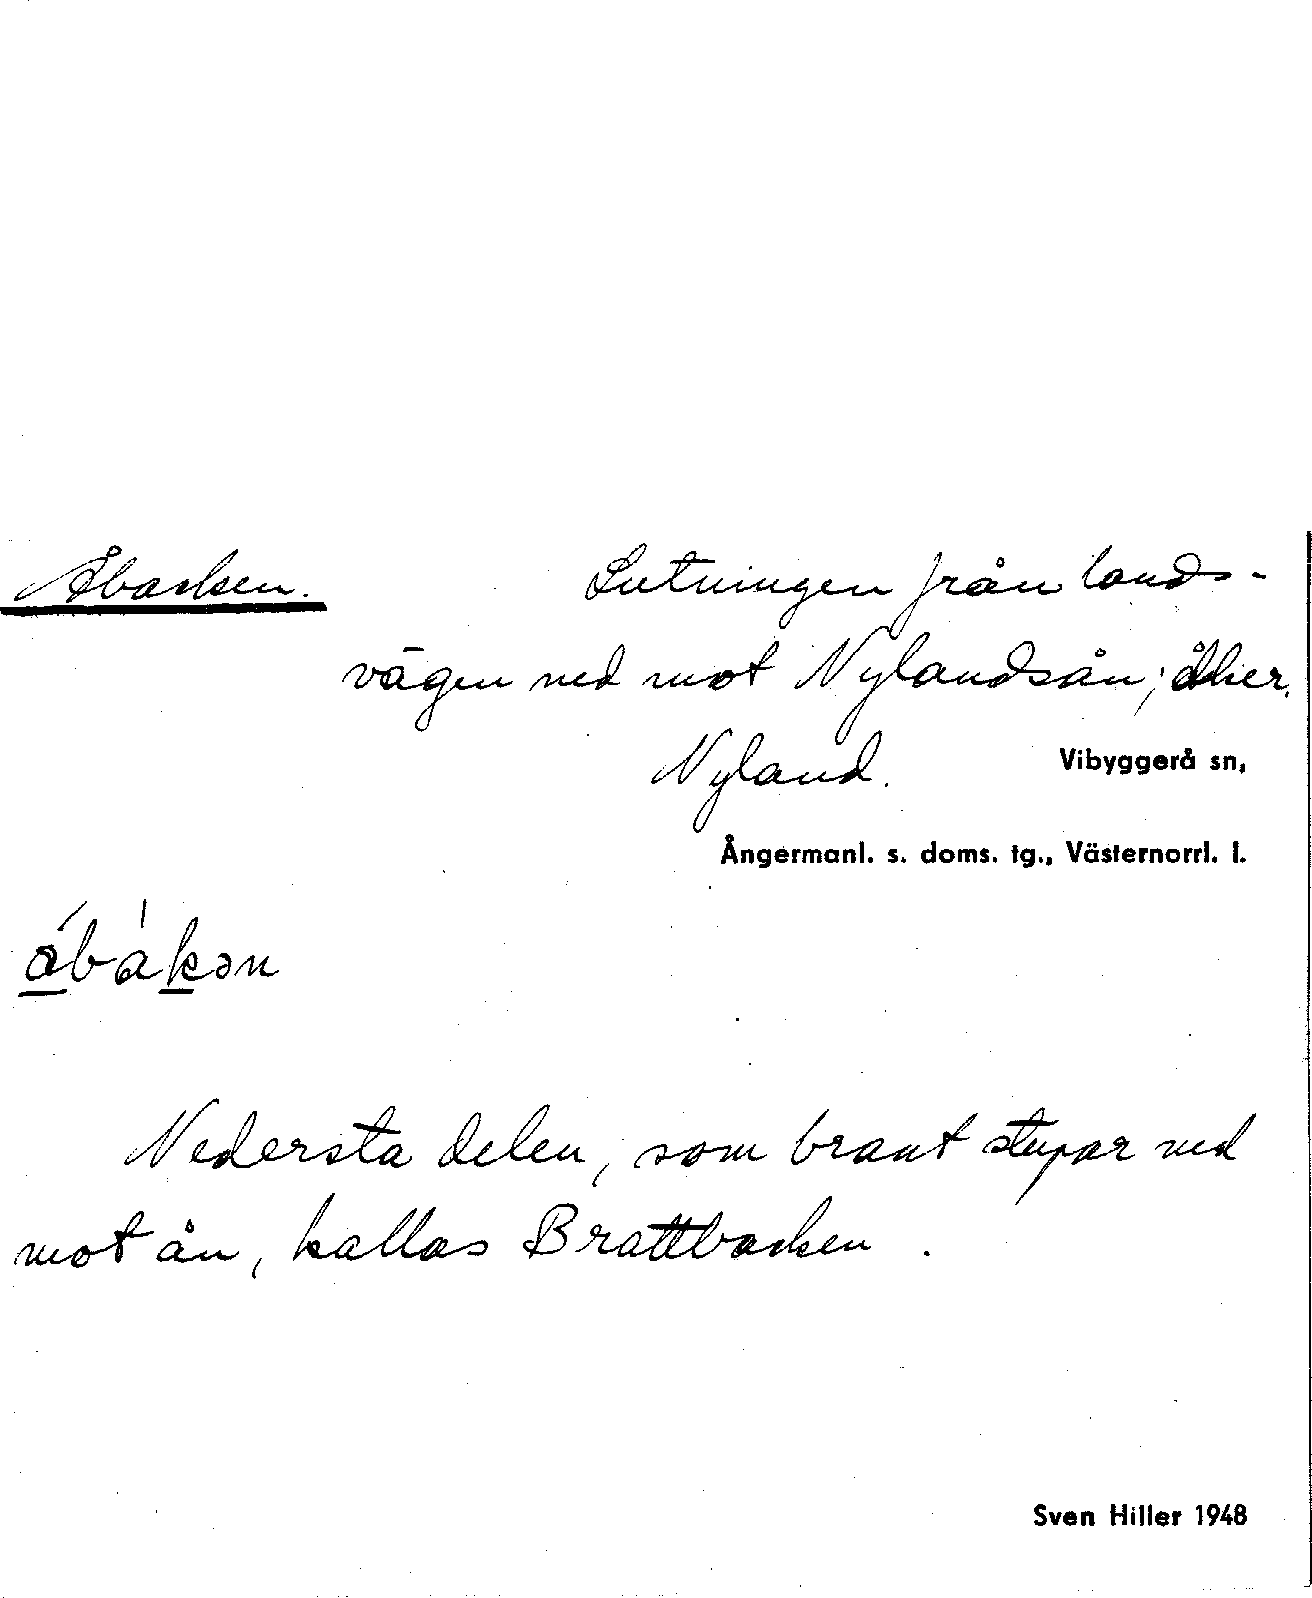 Åbacken. Lutningen från lands-
vägen ned mot Nylandsån; åker,
Nyland. Vibyggerå sn,
Ångermanl. s. doms. tg., Västernorrl. l.
Nedersta delen, som brant stupar ned
mot ån, kallas Brattbacken.
Sven Hiller 1948